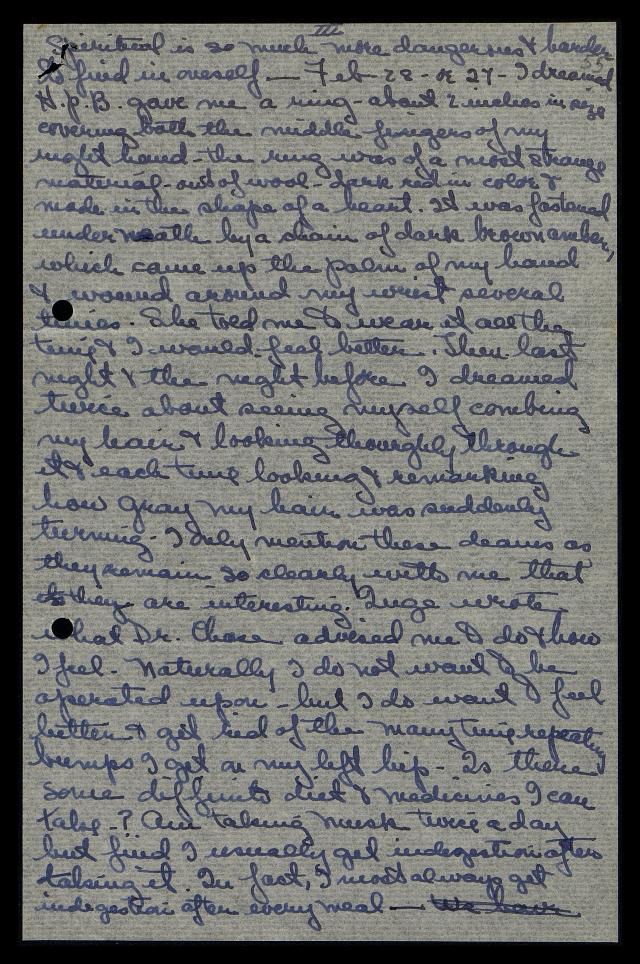 III
Spiritual is so much more dangerous & harder
55
to find in oneself — Feb 28 - or 27 - I dreamed
H.P.B. gave me a ring - about 2 inches in size
covering both the middle fingers of my
right hand - the ring was of a most strange
material - out of wool - dark red in color &
made in the shape of a heart. It was fastened
underneath by a chain of dark brown amber,
which came up the palm of my hand
& wound around my wrist several
times. She told me to wear it all the
time & I would feel better. Then last
night & the night before I dreamed
twice about seeing myself combing
my hair & looking thoroughly through
it & each time looking & remarking
how gray my hair was suddenly
turning - I only mention these dreams as
they remain so clearly with me that
they are interesting. Inge wrote
what Dr. Chase advised me to do & how
I feel - Naturally I do not want to be
operated upon - but I do want to feel
better & get rid of the many time repeating
bumps I get on my left hip - Is there
some diffunts diet & medicines I can
take -? Am taking musk twice a day
but find I usually get indegestion after
taking it. In fact, I most always get
indegestion after every meal — We have